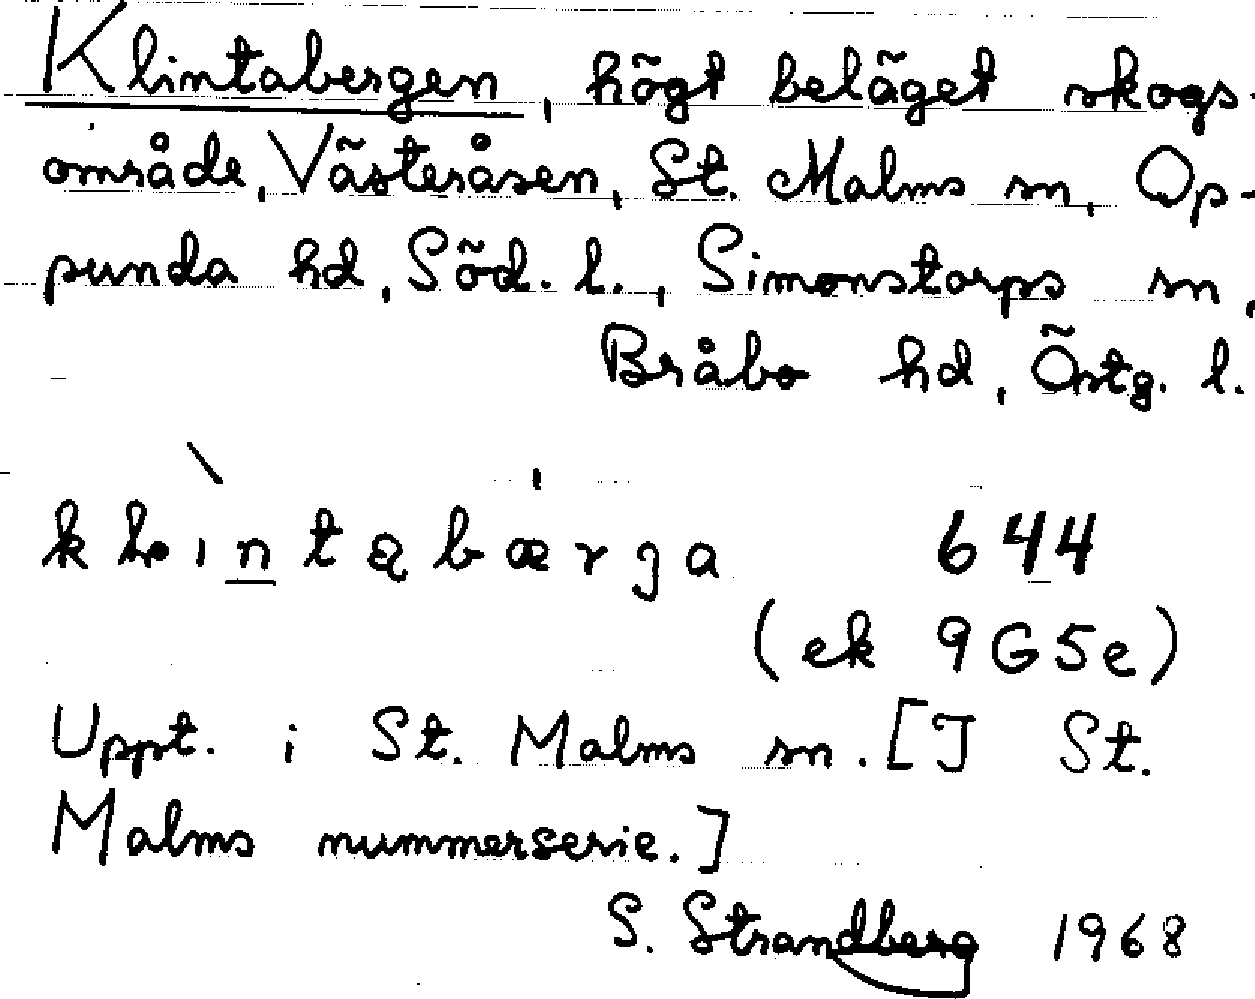 Klintabergen, högt beläget skogs-
område, Västeråsen, St. Malms sn, Op-
punda hd, Söd. l., Simonstorps sn,
Bråbo hd, Östg. l.
644
(ek 9G5e)
Uppt. i St. Malms sn. [I St.
Malms nummerserie.]
S. Strandberg 1968